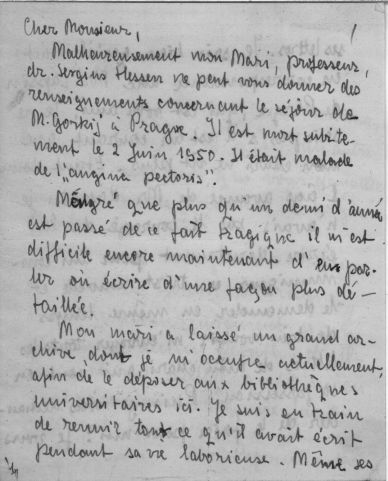 1
Cher Monsieur,
Malheureusement mon Mari, professeur,
dr. Sergius Hessen ne peut vous donner des
renseignements concernant le séjour de
M. Gorkij à Prague. Il est mort subite-
ment le 2 Juin 1950. Il était malade
de l'"angina pectoris".
Malgré que plus qu'un demi d'anné
est passé de ce fait tragique il m'est
difficile encore maintenant d'en par-
ler où écrire d'une façon plus dé-
taillée.
Mon mari a laissé un grand ar-
chive, dont je m'occupe actuellement,
afin de le déposer aux bibliothèques
universitaires ici. Je suis en train
de reunir tout ce qu'il avait écrit
pendant sa vie laborieuse. Même ses